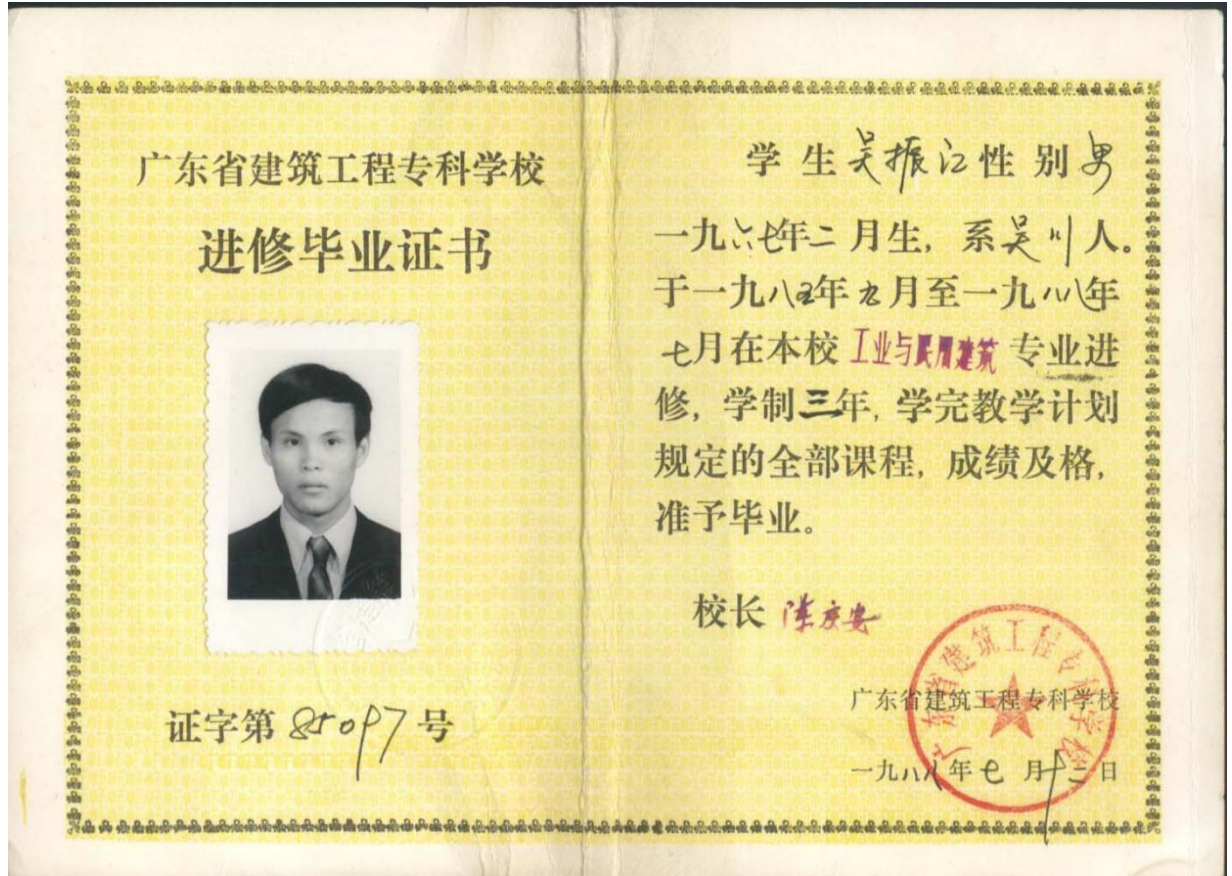 广东省建筑工程专科学校
进修毕业证书
证字第85097号
学生吴振江性别男
一九六七年二月生，系吴川人。
于一九八五年九月至一九八八年
七月在本校工业与民用建筑专业进
修，学制三年，学完教学计划
规定的全部课程，成绩及格，
准予毕业。
校长 陈庆安
广东省建筑工程专科学校
一九八八年七月十二日
广东省建筑工程专科学校